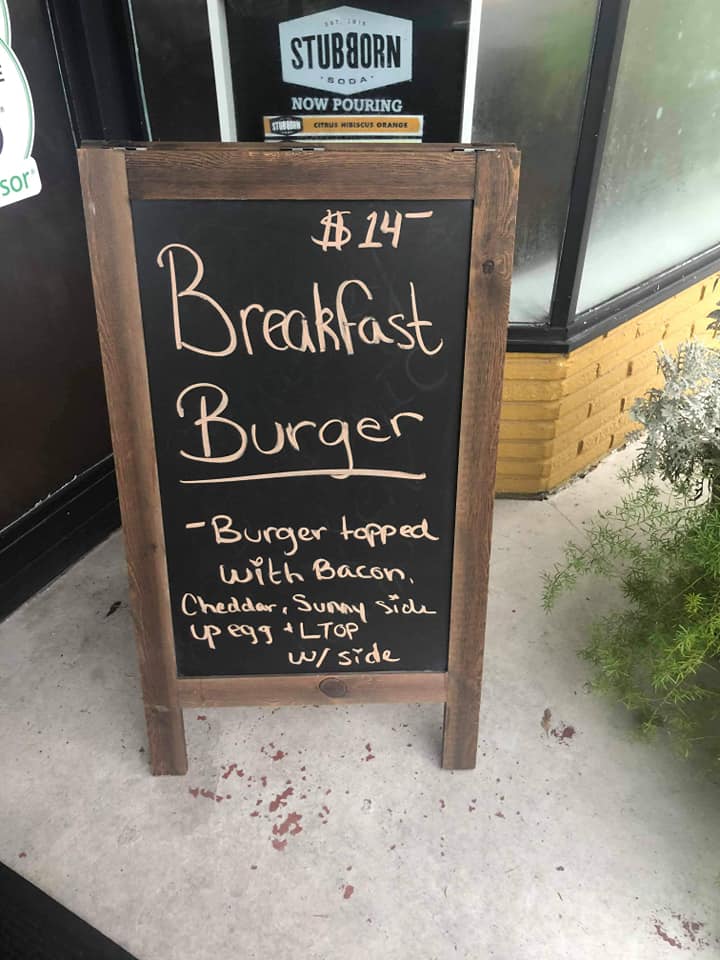 EST. 2015
STUBBORN
SODA
NOW POURING
STUBBORN CITRUS HIBISCUS ORANGE
sor
$14-
Breakfast
Burger
-Burger topped
with Bacon,
Cheddar, Sunny side
up egg + LTOP
w/ side